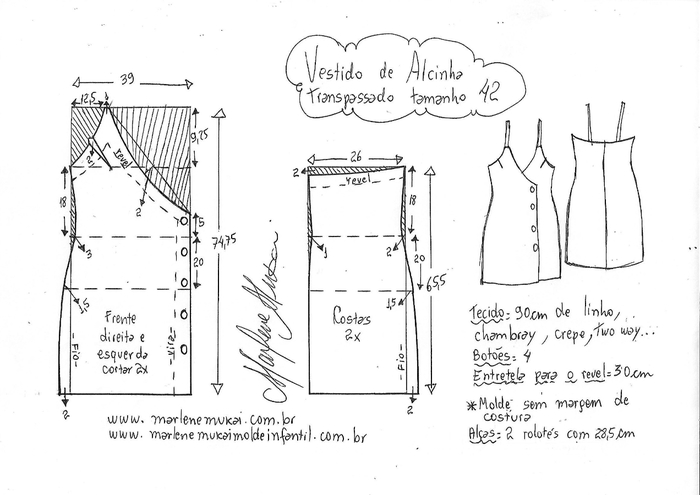 Vestido de Alcinha
transpassado tamanho 42
39
12,5
4
9,25
revel
2
18
5
3
20
74,75
Frente
direita e
esquerda
cortar 2x
Fio
vira
2
26
2
revel
18
1
2
20
65,5
1,5
Costas
2x
Fio
2
Marlene Mukai
Tecido = 90 cm de linho,
chambray, crepe, Two way...
Botões = 4
Entretela para o revel = 30 cm
* Molde sem margem de
costura
Alças = 2 rolotês com 28,5 cm
www.marlenemukai.com.br
www.marlenemukaimoldeinfantil.com.br